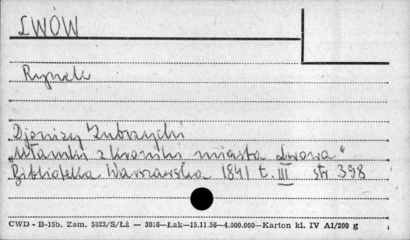 LWÓW
Rynek
Djonizy Zubrzycki
„Ułamki z kroniki miasta Lwowa"
Biblioteka Warszawska 1841 t. III str 398
CWD - B-15b. Zam. 5323/S/Łż — 3016—Łak—15.11.56—4.000.000—Karton kl. IV A1/200 g